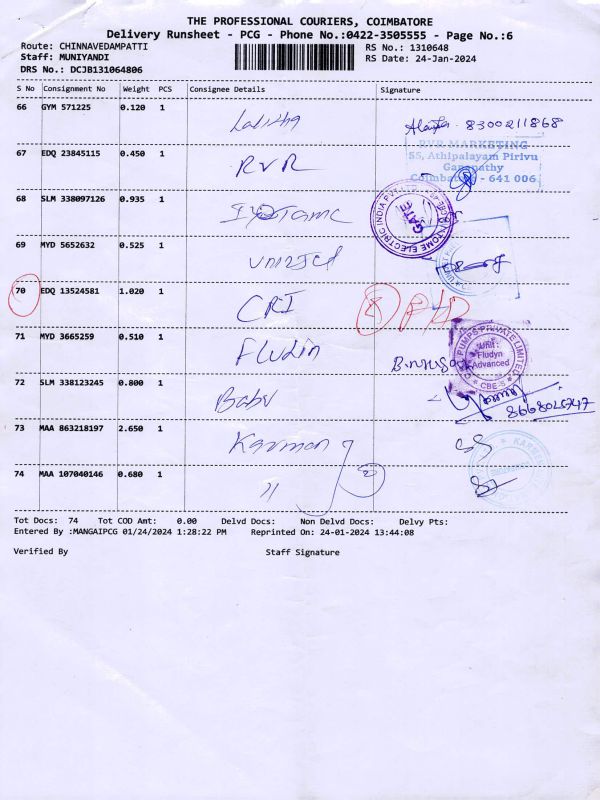 THE PROFESSIONAL COURIERS, COIMBATORE
Delivery Runsheet - PCG - Phone No.:0422-3505555 - Page No.:6
Route: CHINNAVEDAMPATTI RS No.: 1310648
Staff: MUNIYANDI RS Date: 24-Jan-2024
DRS No.: DCJB131064806
S No Consignment No Weight PCS Consignee Details Signature
66 GYM 571225 0.120 1 8300211868
67 EDQ 23845115 0.450 1 RVR
RVR MARKETING
55, Athipalayam Pirivu
Ganapathy
Coimbatore - 641 006
68 SLM 338097126 0.935 1
GATE
69 MYD 5652632 0.525 1
70 EDQ 13524581 1.020 1 CRI
71 MYD 3665259 0.510 1 Fludin
PUMPS PRIVATE LIMITED
Unit :
Fludyn
Advanced
CBE-6
72 SLM 338123245 0.800 1 Babu
73 MAA 863218197 2.650 1 Karmon
74 MAA 107040146 0.680 1 11 2
Tot Docs: 74 Tot COD Amt: 0.00 Delvd Docs: Non Delvd Docs: Delvy Pts:
Entered By :MANGAIPCG 01/24/2024 1:28:22 PM Reprinted On: 24-01-2024 13:44:08
Verified By Staff Signature